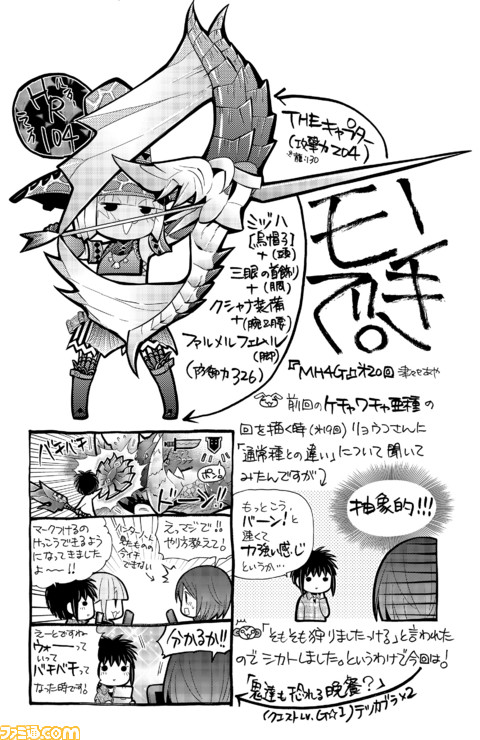 HR
104
THEキャプター
(攻撃力204)
※龍130
モーイキ
で。
ミヅハ
[烏帽子]
+(頭)
三眼の首飾り
+(胴)
クシャナ装備
+(腕と腰)
ファルメルフェムル
(脚)
(防御力326)
『MH4G』其20回
前回のケチャワチャ亜種の
回を描く時(其19回)リョウコさんに
「通常種との違い」について聞いて
みたんですが
バキバキ
ドーン!!
マークつけるの
けっこうできるよう
になってきました
よ~~!!
ハンターノート
見たものの
今イチ
できない
えっマジで!!
やり方教えて!
もっとこう、
バーン!と
速くて
力強い感じ
というか…
抽象的!!!
えーとですね
ウォーーって
いって
バキバキてって
なった時です!
分かるか!!
「そもそも狩りましたっけ」と言われた
のでシカトしました。というわけで今回は!
「鬼達も恐れる晩餐?」
(クエストLv.G☆1)テツカブラ×2
ファミ通.com